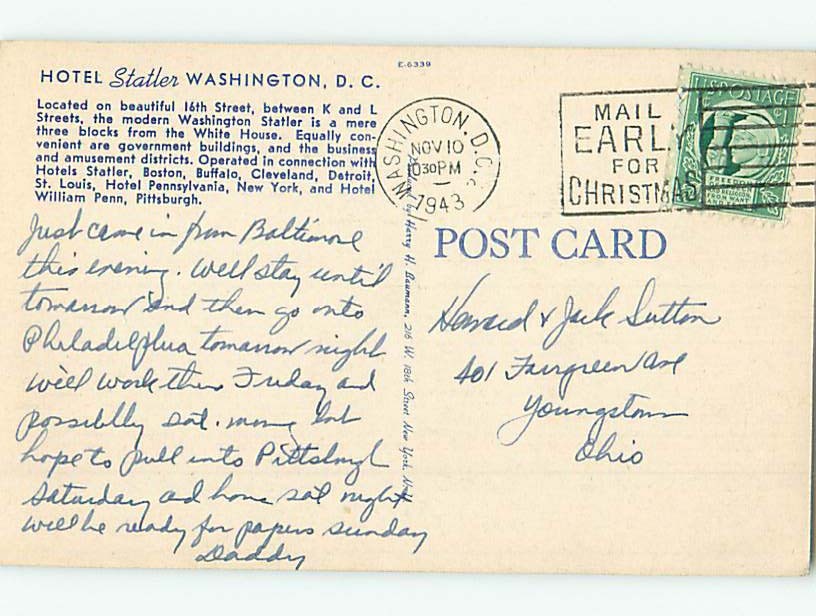 E-6339
HOTEL Statler WASHINGTON, D. C.
Located on beautiful 16th Street, between K and L
Streets, the modern Washington Statler is a mere
three blocks from the White House. Equally con-
venient are government buildings, and the business
and amusement districts. Operated in connection with
Hotels Statler, Boston, Buffalo, Cleveland, Detroit,
St. Louis, Hotel Pennsylvania, New York, and Hotel
William Penn, Pittsburgh.
Just came in from Baltimore
this evening. Will stay until
tomorrow and then go onto
Philadelphia tomorrow night
we'll work there Friday and
possiblly sat. morning but
hope to pull into Pittsburgh
Saturday and home sat night
will be ready for papers sunday
Daddy
by Harry H. Baumann, 216 W. 18th Street New York, N.Y.
WASHINGTON, D.C.
NOV 10
1030 PM
1943
MAIL
EARLY
FOR
CHRISTMAS
US POSTAGE
1¢
FREEDOM
FROM WANT
POST CARD
Howard & Jack Sutton
401 Fairgreen Ave
Youngstown
Ohio